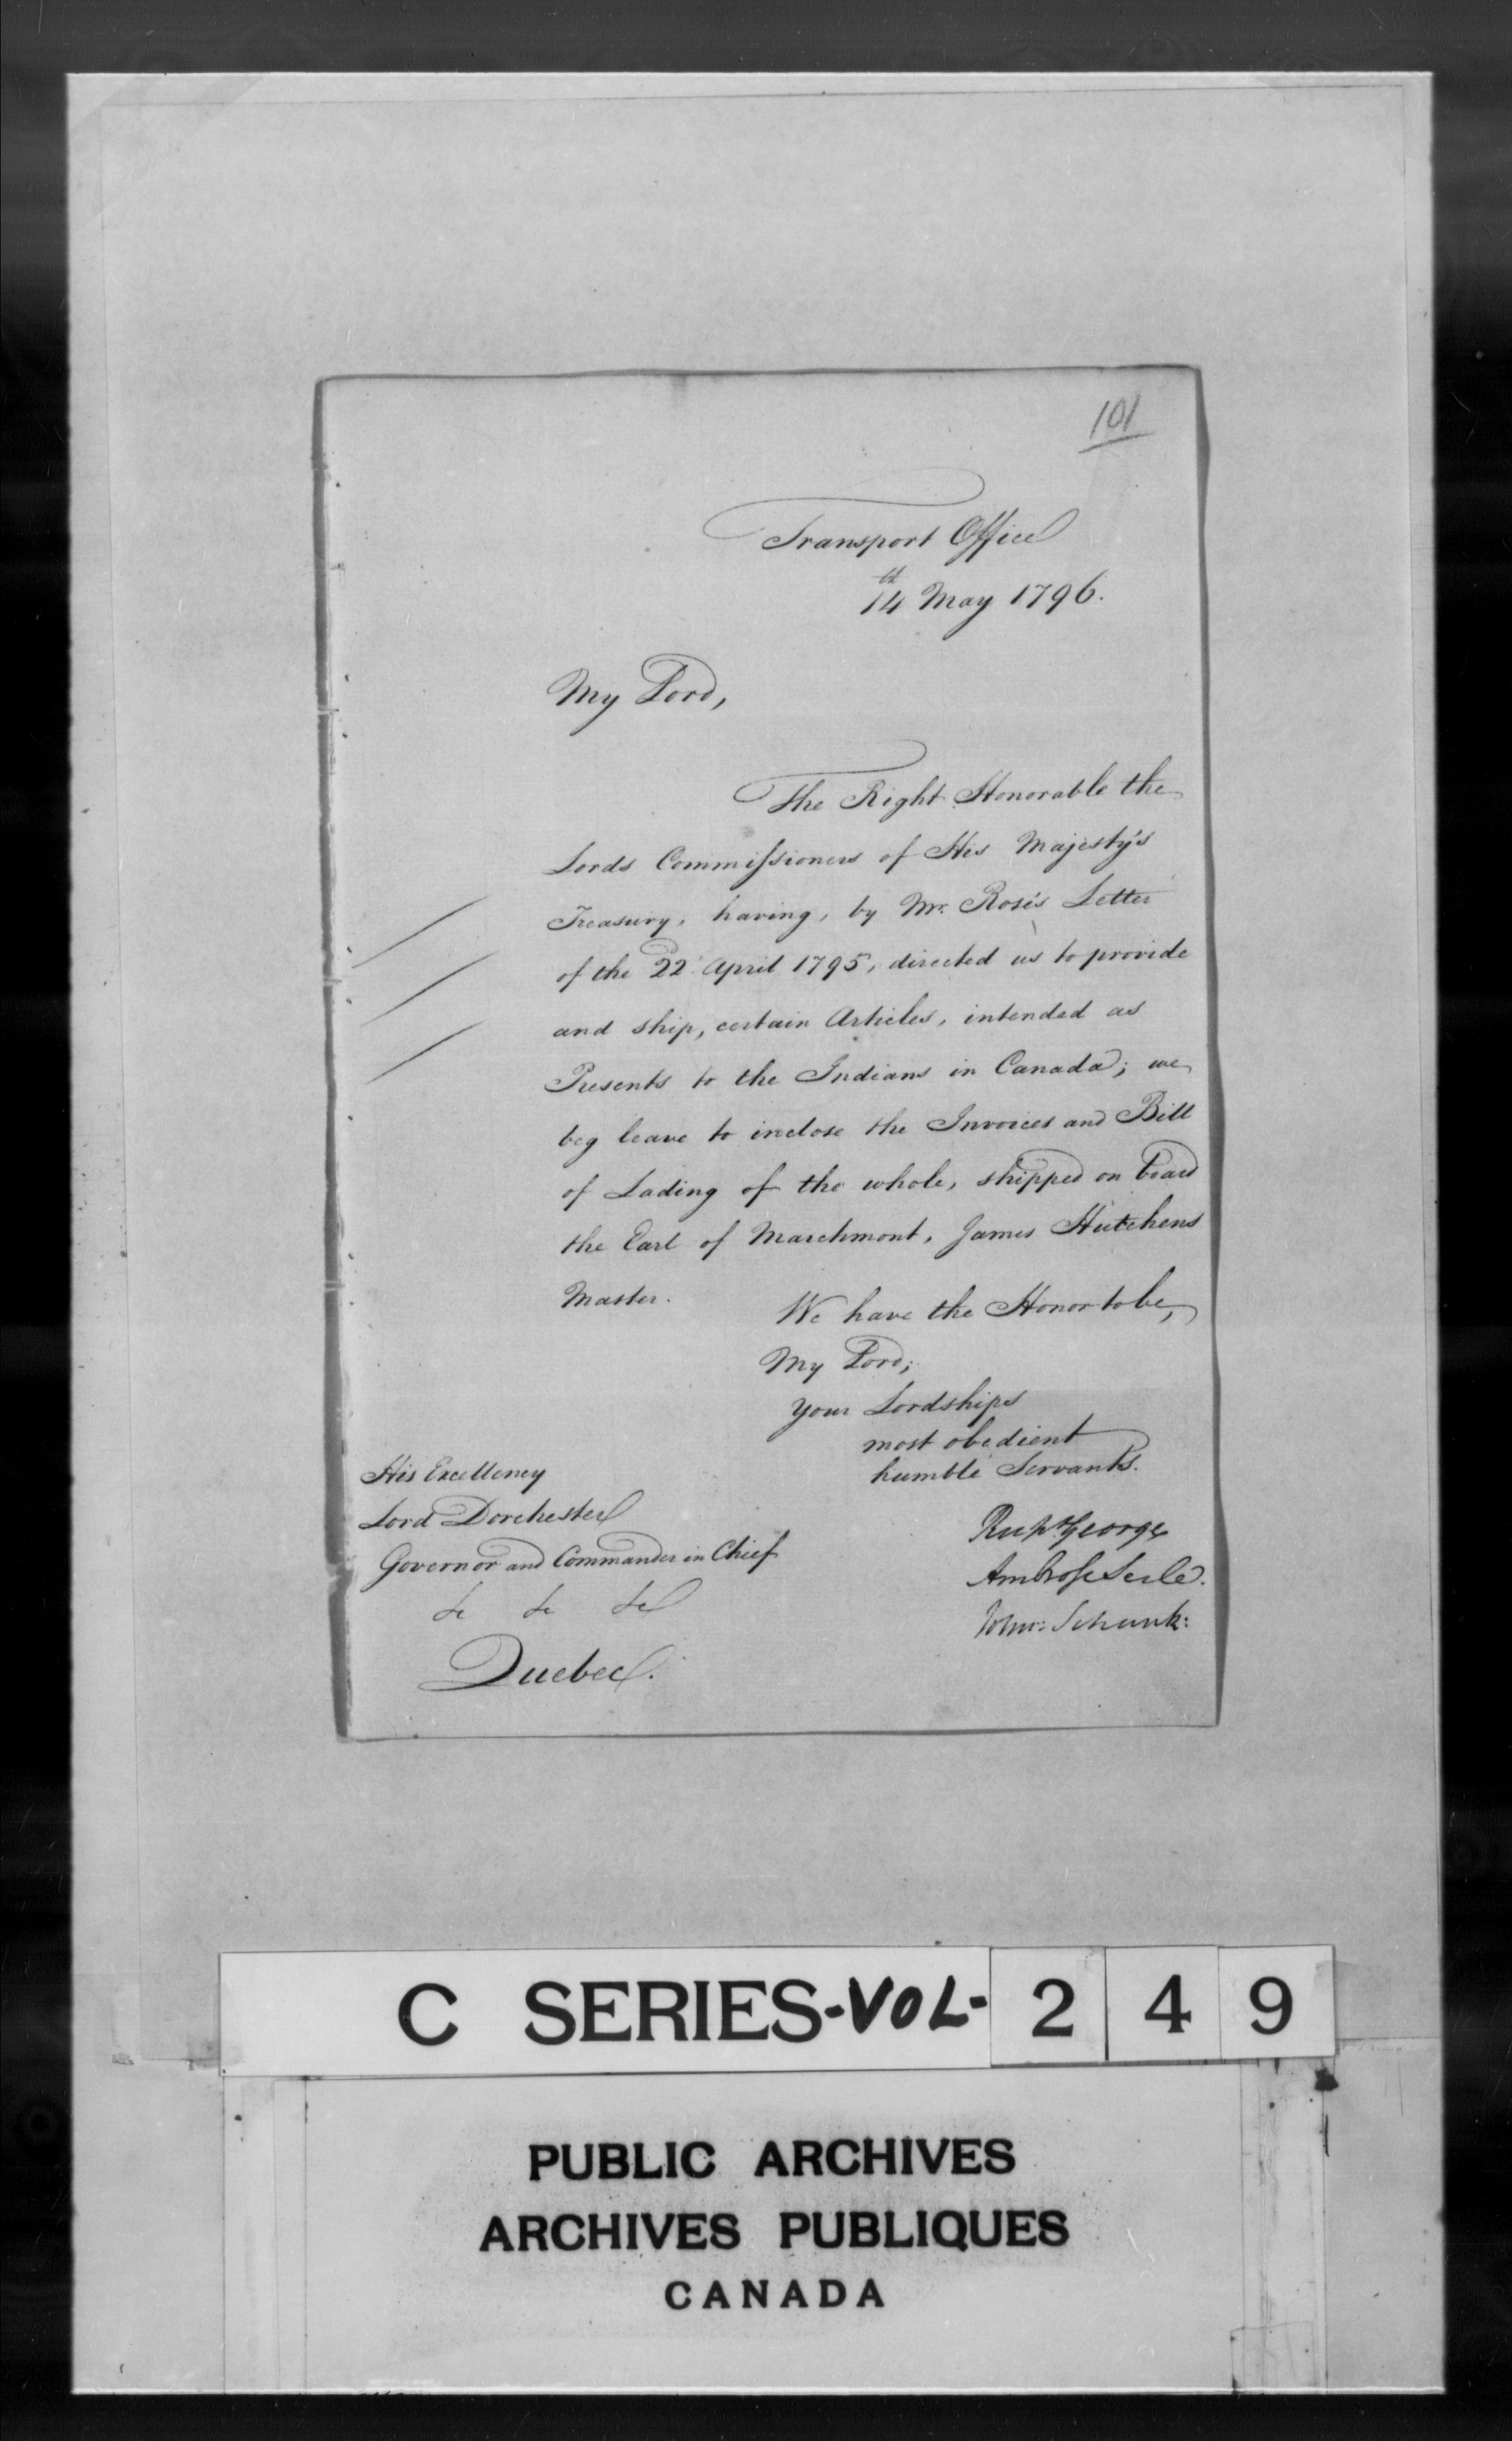 101
Transport Office
14th May 1796.
My Lord,
The Right Honorable the
Lords Commissioners of His Majesty's
Treasury, having, by Mr. Rose's Letter
of the 22d April 1795, directed us to provide
and ship, certain Articles, intended as
Presents to the Indians in Canada; we
beg leave to inclose the Invoices and Bill
of Lading of the whole, shipped on board
the Earl of Marchmont, James Hutchens
Master.
We have the Honor to be,
My Lord,
Your Lordships
most obedient
humble Servants.
His Excellency
Lord Dorchester
Governor and Commander in Chief
&c &c &c
Quebec.
Rupt George
Ambrose Serle.
John: Schank:
C SERIES-VOL-249
PUBLIC ARCHIVES
ARCHIVES PUBLIQUES
CANADA